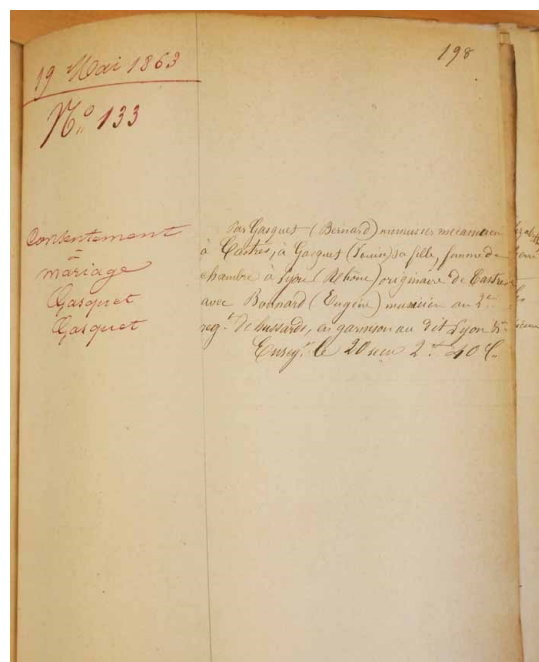 198
19 Mai 1863
N.º 133
Consentement
à
mariage
Gasquet
Gasquet
Par Gasquet (Bernard) menuisier mecanicien
à Castres, à Gasquet (Louise) sa fille, femme de
chambre à Lyon (Rhône) originaire de Castres
avec Bonnard (Eugène) musicien au 3.e
reg.t de hussards, en garnison au dit Lyon
Enreg.t le 20 2 40 c.